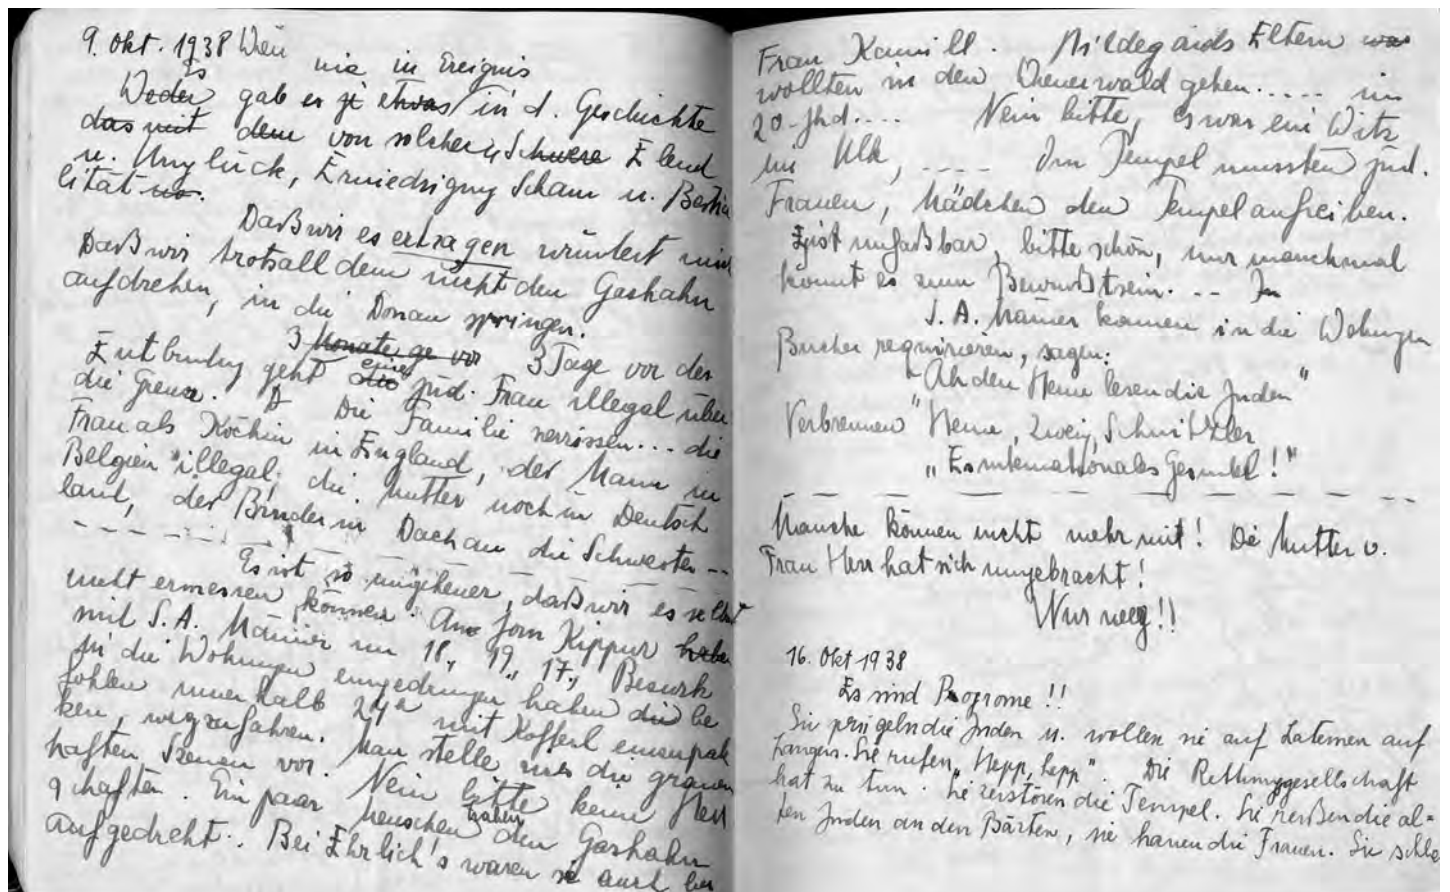 9. Okt. 1938 Wien
nie ein Ereignis
Es
Weder gab es je etwas in d. Geschichte
das mit dem von solchem Schwere Elend
u. Unglück, Erniedrigung Scham u. Bestia
lität us.
Daß wir es ertragen wundert mich
Daß wir trotz all dem nicht den Gashahn
aufdrehen, in die Donau springen.
3 Monate ge vor 3 Tage vor der
Entbindung geht die eine jüd. Frau illegal über
die Grenze. D Die Familie zerrissen... die
Frau als Köchin in England, der Mann in
Belgien "illegal, die Mutter noch in Deutsch
land, der Bruder in Dachau die Schwester --
Es ist so ungeheuer, daß wir es selbst
nicht ermessen können. Am Jom Kippur haben
mit S.A. Männer im 18., 19., 17., Bezirk
in die Wohnungen eingedrungen haben die be
fohlen innerhalb 24h mit Kofferl einenpak
ken, wegzufahren. Man stelle uns die grauen
haften Szenen vor. Nein bitte keine
schaften. Ein paar Menschen haben den Gashahn
aufgedreht. Bei Ehrlich's waren sie auch bei
Frau Kamill. Hildegards Eltern wo
wollten in den Wienerwald gehen..... im
20. Jhd.... Nein bitte, es war ein Witz
im Ulk, .... Im Tempel mussten jüd.
Frauen, Mädchen den Tempel aufreiben.
Es ist unfaßbar, bitte schön, nur manchmal
kommt es zum Bewußtsein. -- In
S.A. Männer kamen in die Wohnungen
Bücher requirieren, sagen:
"Ah den Heine lesen die Juden"
Verbrennen" Heine, Zweig, Schnitzler
"Es internationales Gesindel!"
Manche können nicht mehr mit! Die Mutter v.
Frau Herr hat sich umgebracht!
Nur weg!!
16. Okt 1938
Es sind Pogrome!!
Sie prügeln die Juden u. wollen sie auf Laternen auf
hängen. Sie rufen "Hepp, hepp". Die Rettungsgesellschaft
hat zu tun. Sie zerstören die Tempel. Sie reißen die al=
ten Juden an den Bärten, sie hauen die Frauen. Sie schla